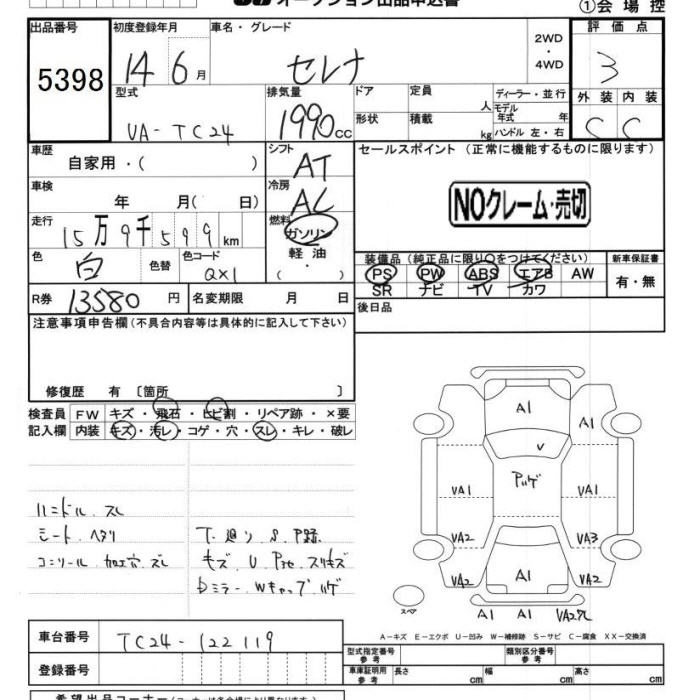 オークション出品申込書
①会場控
出品番号
初度登録年月
車名・グレード
2WD
・
4WD
評価点
5398
14 6月
セレナ
3
型式
排気量
ドア
定員
人
ディーラー・並行
外装 内装
UA-TC24
1990cc
形状
積載
kg
モデル年式 年
ハンドル 左・右
C C
車歴
自家用・( )
シフト
AT
セールスポイント (正常に機能するものに限ります)
車検
年 月( 日)
冷房
AC
NOクレーム・売切
走行
15万9千599km
燃料
ガソリン
軽油
( ・ )
色
白
色替
色コード
QX1
装備品(純正品に限り〇をつけてください)
新車保証書
PS PW ABS エアB AW
SR ナビ TV カワ
有・無
R券 13580円
名変期限 月 日
後日品
注意事項申告欄(不具合内容等は具体的に記入して下さい)
修復歴 有 〔箇所 〕
検査員 FW キズ・飛石・ヒビ割・リペア跡・×要
記入欄 内装 キズ・汚レ・コゲ・穴・スレ・キレ・破レ
ハンドル スレ
シート ヘタリ
コンソール 加工穴 スレ
キズ U
Dミラー Wキャップ ハゲ
A1
A1
A1
V
VA1
VA1
VA2
VA3
VA2
A1
VA2
スペア
A1 A1
A-キズ E-エクボ U-凹み W-補修跡 S-サビ C-腐食 XX-交換済
車台番号
TC24-122119
登録番号
型式指定番号
参考
類別区分番号
参考
車庫証明用
参考
長さ cm
幅 cm
高さ cm
希望出品コーナー